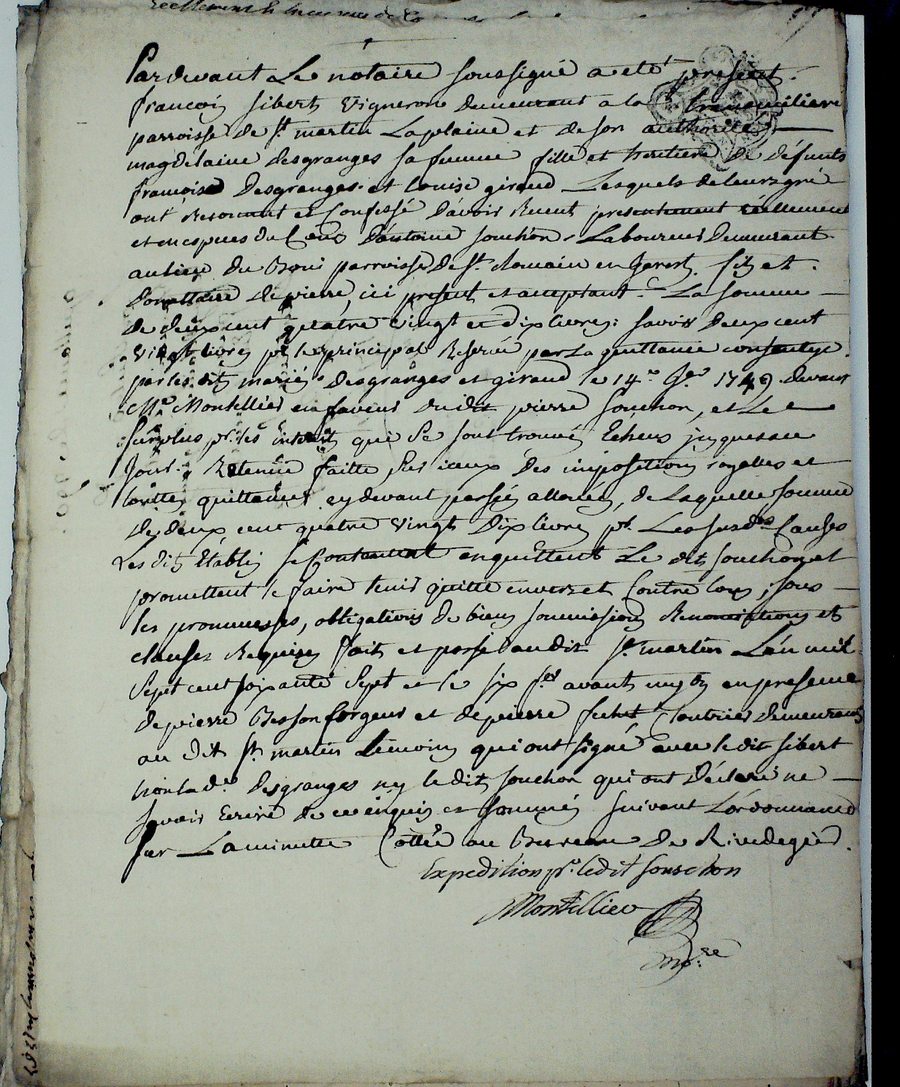 Pardevant Le notaire soussigné a eté présent
françois sibert Vigneron demeurant a la
parroisse de st martin Laplaine et de son authorité
magdelaine desgranges sa femme fille et heritiere de défunts
françois Desgranges et Louise giraud Lesquels de leurs gré
ont Reconnut et Confessé Davoir Receut presentement réellement
et en especes du Cours Dantoine souchon Laboureur Demeurant
au lieu du parroisse de st Romain en Jarest fils et
Donattaire de pierre ici present et acceptant La somme
de deux cent quatre vingt et dix livres savoir deux cent
vingt livres pr le principal Reservé par La quittance consentye
par les dits mariés Desgranges et giraud le 14e 1749 devant
Me Montellier en faveur dudit pierre souchon, et Le
surplus pr les interets qui se sont trouvé Echeus jusques a ce
Jour Retenue faitte sur iceux des impositions royalles et
quittances cy devant passés alloués, de Laquelle somme
De deux cent quatre vingt Dix livres pr Les susdes Causes
Les dits Etablis se Contentent en quittent Le dit souchon et
promettent le faire tenir quitte envers et Contre tous, sous
les promesses, obligations de biens soummissions Renonciations et
clauses Requises fait et passé audit st martin L'an mil
Sept cent soixante Sept et le six avant midy en presence
de pierre Besson forgeur et de pierre demeurants
au dit st martin temoins qui ont signé avec le dit sibert
non la de Desgranges ny le dit souchon qui ont Déclaré ne
savoir Ecrire de ce enquis et sommés suivant L'ordonnance
sur La minutte Collée au Bureau de Rivedegier.
Expedition pr ledit souschon
Montellier
nore